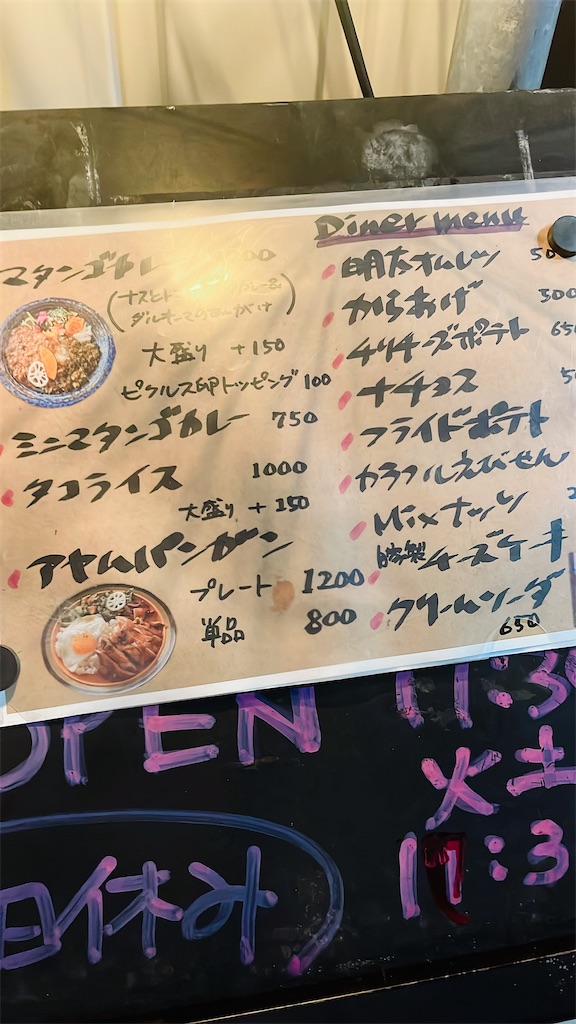 マタンゴカレー
ダルキーマのあいがけ)
大盛り +150
ピクルス卵トッピング 100
ミニマタンゴカレー 750
タコライス 1000
大盛り +150
アヤムパンガン
プレート 1200
単品 800
Diner menu
明太オムレツ
からあげ 500
チリチーズポテト 650
ナチョス
フライドポテト
カラフルえびせん
Mixナッツ
特製チーズケーキ
クリームソーダ
650
OPEN 11:30
火土
17:3
日休み